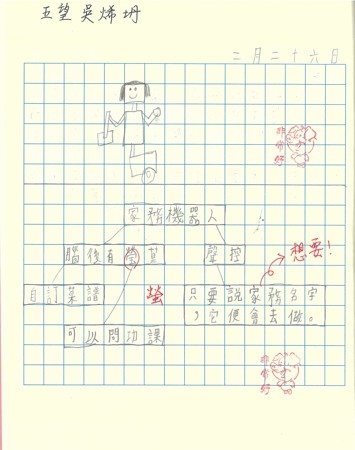 五望 吳烯
二月二十六日
非常好
家務機器人
腦後有 聲控
想要！
自訂菜譜 螢 只要說家務名字
，它便會去做。
可以問功課
非常好